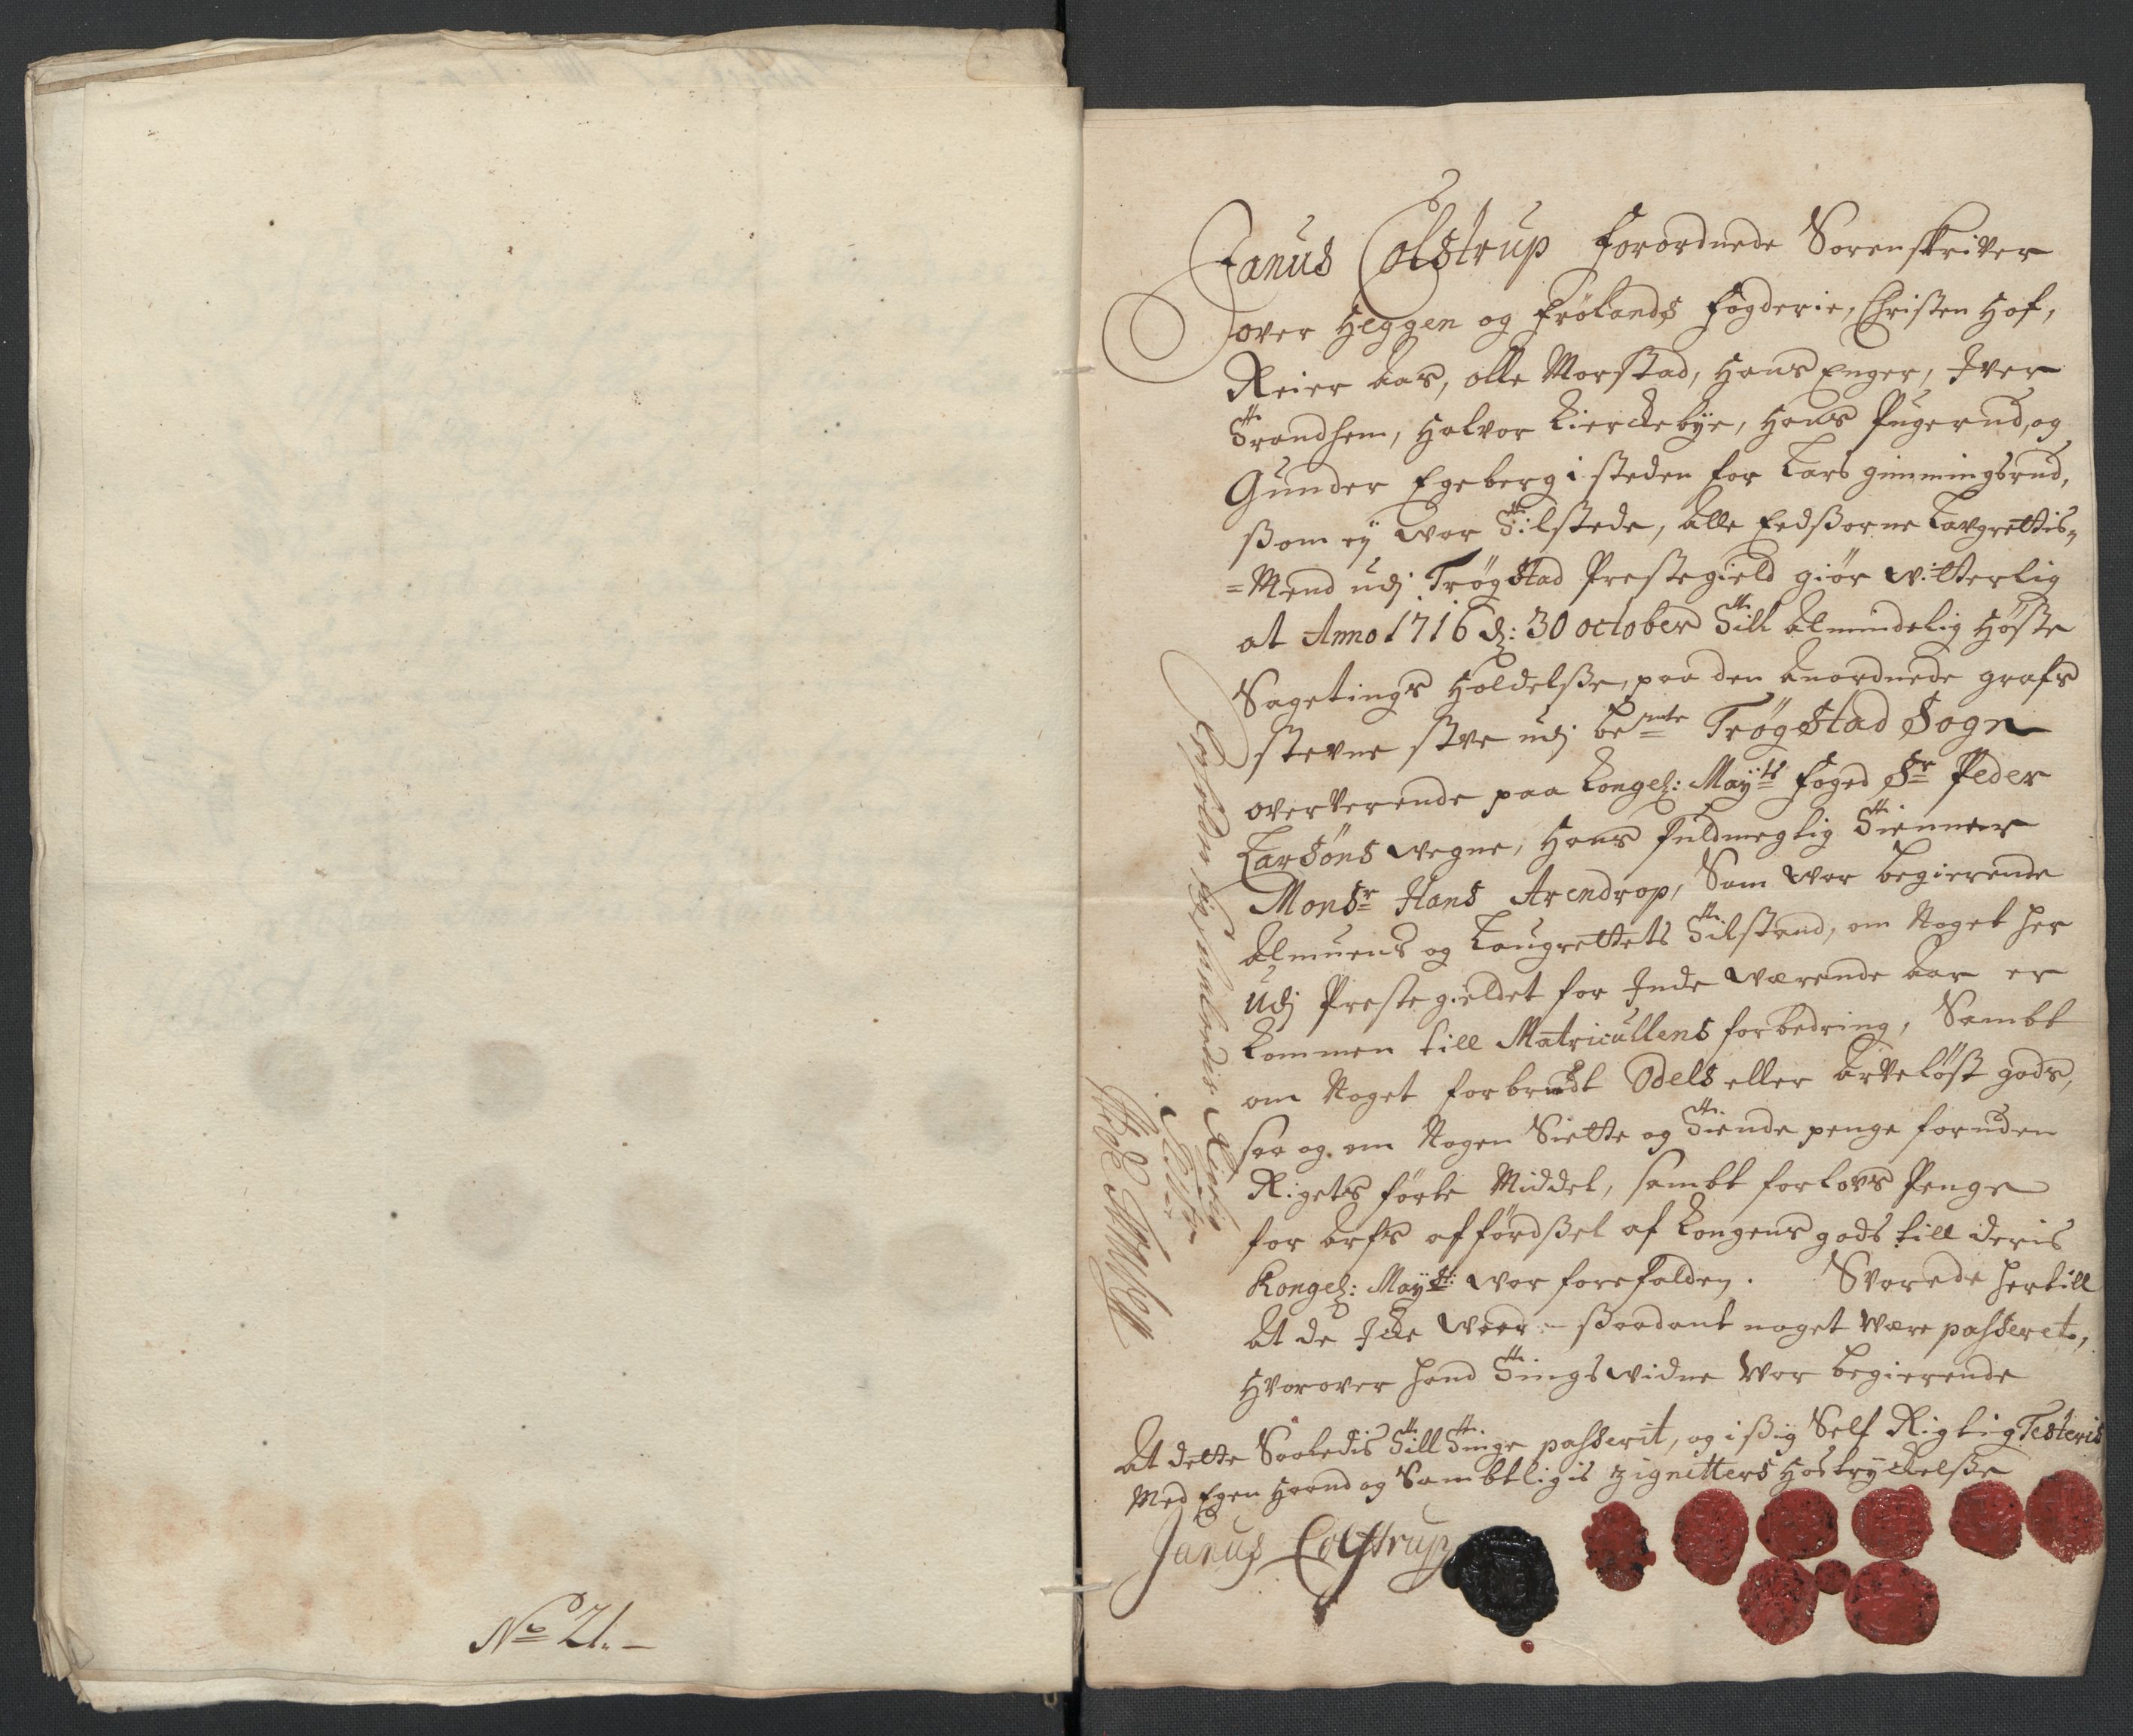 No 21.
Janus Colstrup Forordnede Sorenskriver
over Heggen og Frölands Fogderie, Christen Hof,
Reier Aas, Olle Morstad, Hans Enger, Iver
Trandhem, Halvor Kierckebye, Hans Pugerud, og
Gunder Egeberg i steden for Lars Gimmingsrud,
ßom ey war Tilstede, Alle Eedßorne Laugrettis
=Mend udj Trøgstad Prestegield giør witterlig
at Anno 1716 d: 30 october Till Almindelig Høste
Sagetings Holdelße, paa den Anordnede grafs
stevne stue udj bemte Trøgstad Sogn
oververende paa Kongel: Mayts Foged Sr Peder
Larsøns wegne, Hans fuldmegtig Tienner
Monsr Hans Arendrop, Som war begierende
Almuens og Laugrettets Tilstand, om Noget her
Udj Prestegieldet for Inde wærende Aar er
kommen till Matricullens forbedring, Sambt
om Noget forbrudt Odels eller Arveløst gods,
saa og om Nogen Siette og Tiende penge foruden
Rigets førte Middel, sambt forlovs Penge
for Arfs afførdßel af Kongens gods till deris
Kongel: Mayst: war forefalden. Svarede hertill
At de Icke weed ßaadant noget være passeret,
Hvorover hand Tingswidne War begierende
At dette Saaledis Till Tinge passerit, og i ßig Self Rigtig Testeris
Med Egen Haand og Samtligis zignitters Hostryckelße
Janus Colstrup